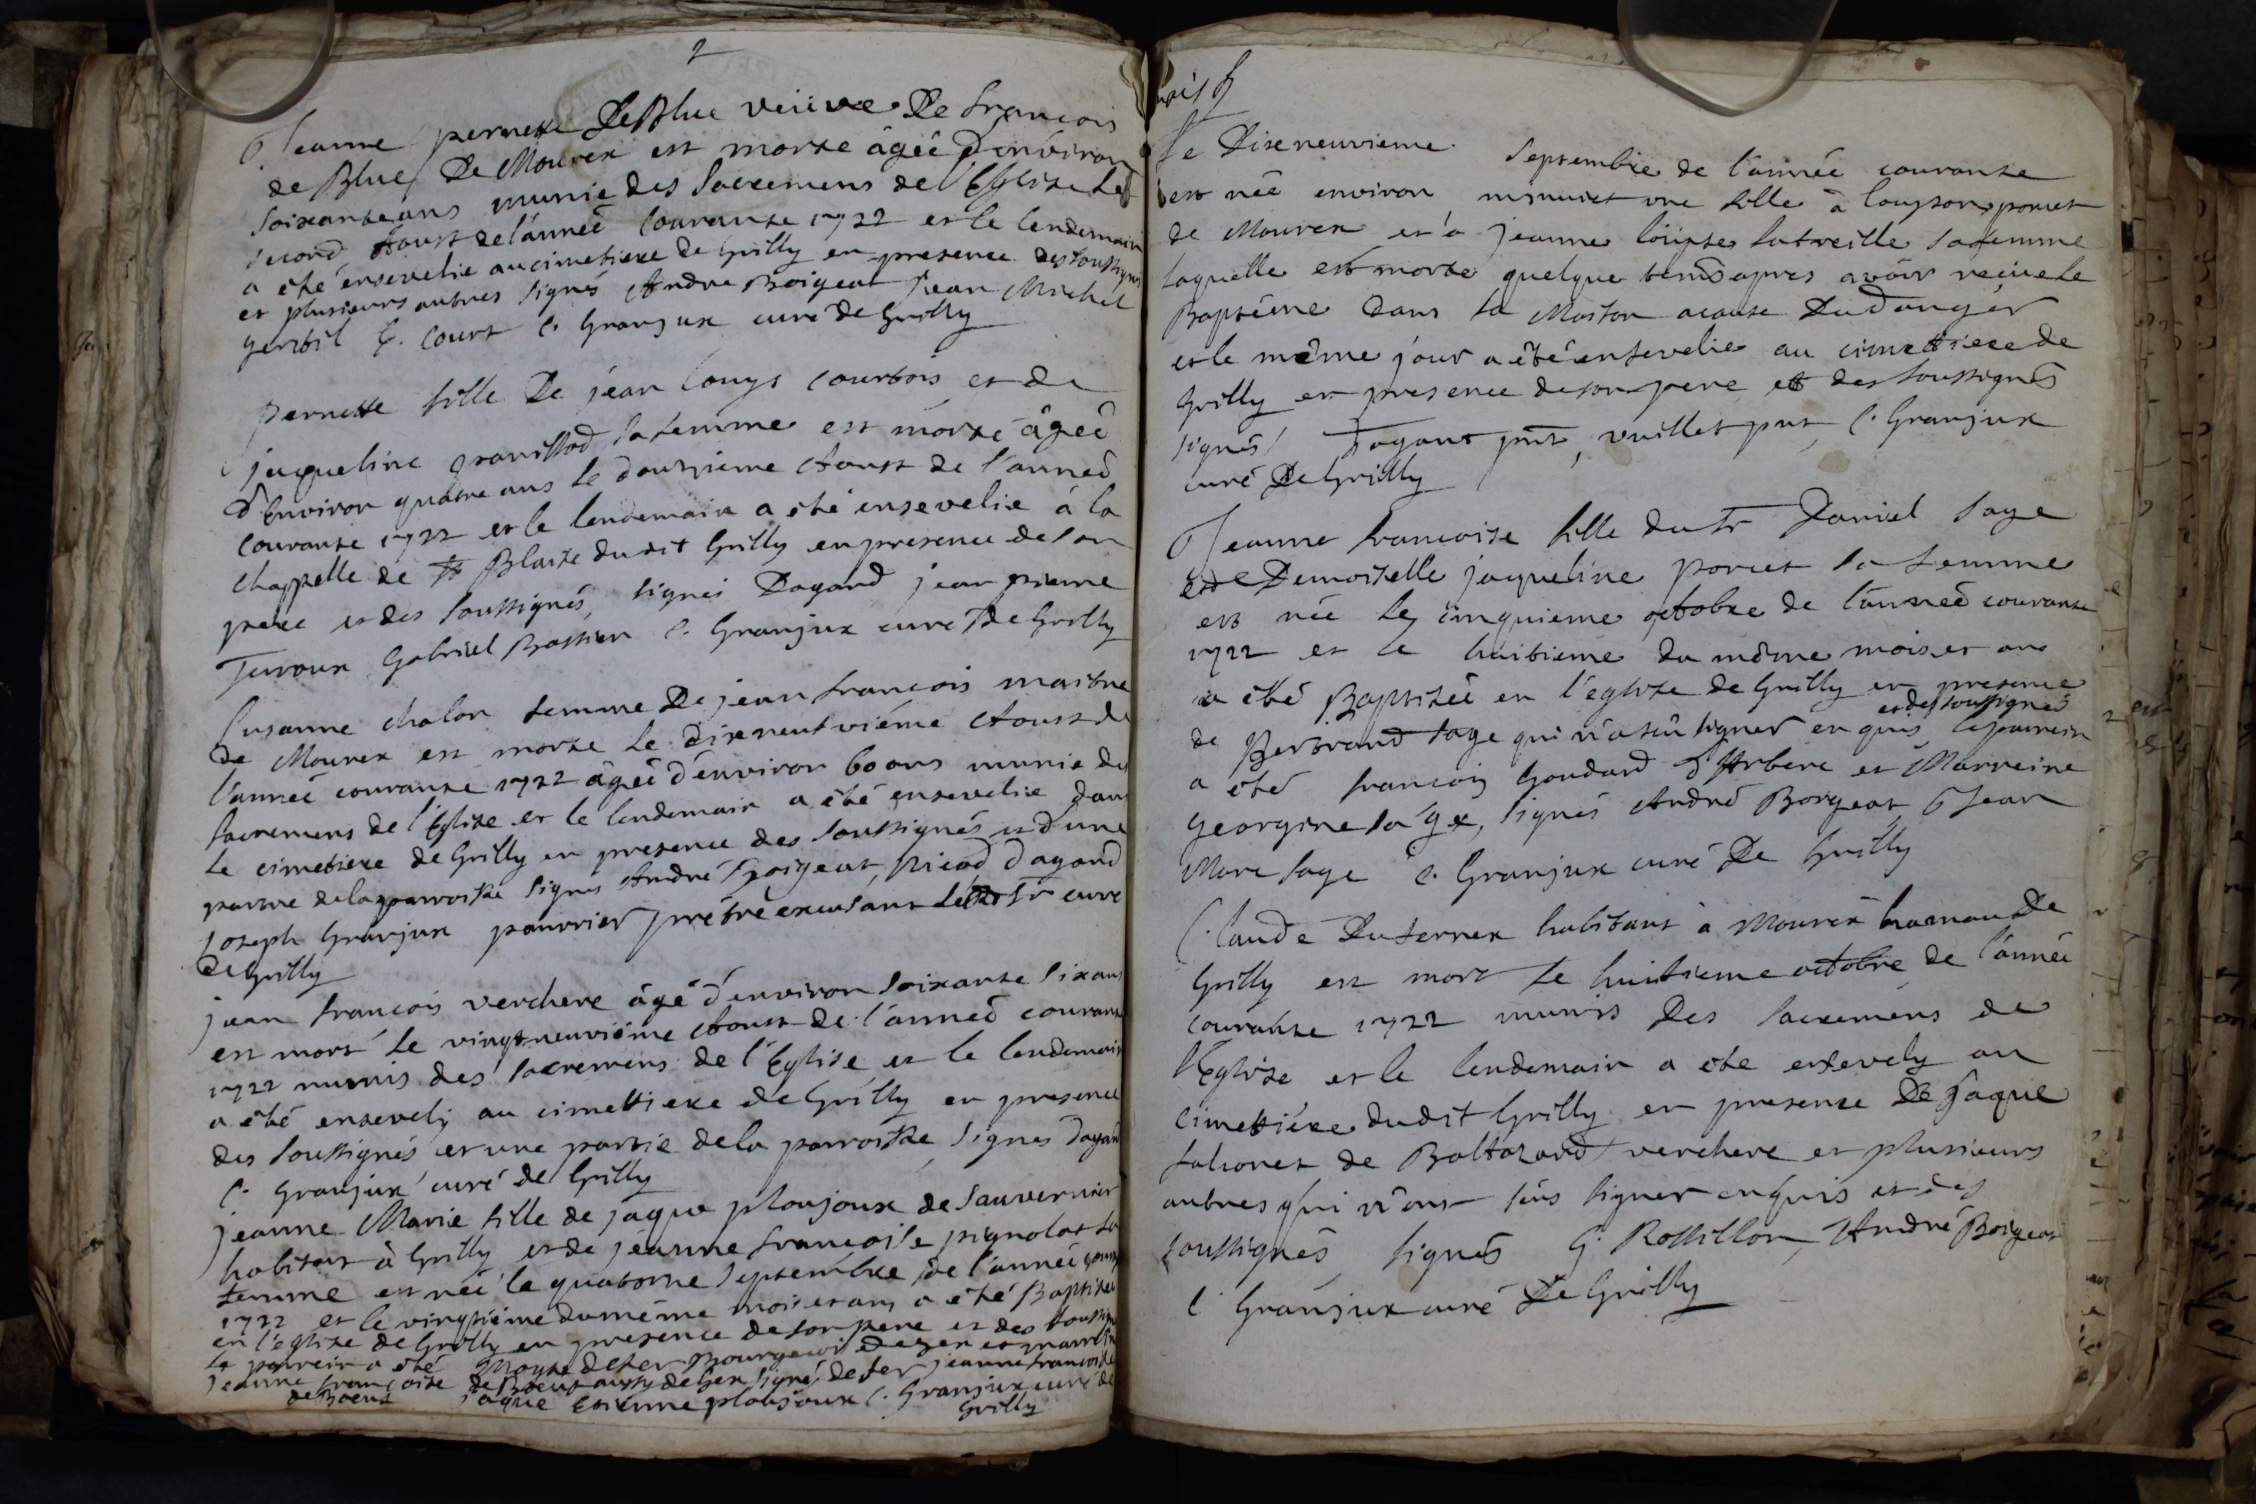 2
Jeanne pernette De Blue veuve De françois
de Blue De Mourex est morte âgée d'environ
soixante ans munie des sacremens de l'Eglise le
second Aoust de l'année courante 1722 et le lendemain
a été ensevelie au cimetiere de Grilly en presence des soussignés
et plusieurs autres signés Andre Boigeat Jean Michel
gentil G. Court C. Granjux curé de Grilly
pernette fille De jean louys courtois et de
jaqueline granillod sa femme est morte âgée
d'Environ quatre ans le douzieme Aoust de l'année
courante 1722 et le lendemain a été ensevelie à la
chappelle de St Blaise dudit Grilly en presence de son
pere et des soussignés, signés Dagand jean pierre
Turoux Gabriel Bastien C. Granjux curé De Grilly
Susanne chalon femme De jean françois maitre
De Mourex est morte le dixneufviéme Aoust de
l'année courante 1722 âgée d'environ 60 ans munie des
sacremens de l'Eglise et le lendemain a été ensevelie dans
le cimetiere de Grilly en presence des soussignés et d'une
partie de la parroisse signés André Boigeat, picod dagand
Joseph Granjux pauvrier prêtre excusant le sr curé
De Grilly
jean françois verchere âgé d'environ soixante six ans
est mort le vingtneuviéme Aoust de l'année courante
1722 munis des sacremens de l'Eglise et le lendemain
a été ensevely au cimettiere de Grilly en presence
des soussignés et une partie de la parroisse signés dagand
C. Granjux curé de Grilly
jeanne Marie fille de jaque ploujoux de Sauvernier
habitant à Grilly et de jeanne françoise pignolat sa
femme est née le quatorze septembre de l'année courante
1722 et le vingtiéme du méme mois et an a été Baptisée
en l'église de Grilly en presence de son pere et des soussignés
le parrein a été Moyse defer Bourgeois de gex et marreine
jeanne françoise de Boeuf aussy de Gex signés defer jeanne françoise
de Boeuf jaque Etienne ploujoux C. Granjux curé de
Grilly
Le Dixneuvieme septembre de l'année courante
est née environ minuict une fille à louyson porcet
de Mourex et à jeanne louise latreille sa femme
laquelle est morte quelque tems apres avoir reçu le
Baptême dans la Maison acause Du danger
et le même jour a été ensevelie au cimettiere de
Grilly en presence de son pere et des soussignés
signés Dagand pnt, vuillet pnt, C. Granjux
curé De Grilly
Jeanne françoise fille du sr Daniel sage
et de Demoiselle jaqueline porcet sa femme
est née le cinquieme octobre de l'année courante
1722 et le huitieme du même mois et an
a été Baptisée en l'eglise de Grilly en presence
et des soussignés
de Bertrand sage qui n'a sçu signer enquis, le parrein
a été françois Goudard d'Arbere et Marreine
georgine sage, signés André Boigeat, Jean
Marc sage C. Granjux curé De Grilly
Claude Duterrex habitant à Mourex hameau De
Grilly est mort le huitieme octobre de l'année
courante 1722 munis Des sacremens de
l'Eglise et le lendemain a été ensevely au
cimettiére dudit Grilly en presence De Jaque
falionet de Baltazard verchere et plusieurs
autres qui n'ont sçus signer enquis et des
soussignés signés G. Rossillon, André Boigeat
C. Granjux curé De Grilly